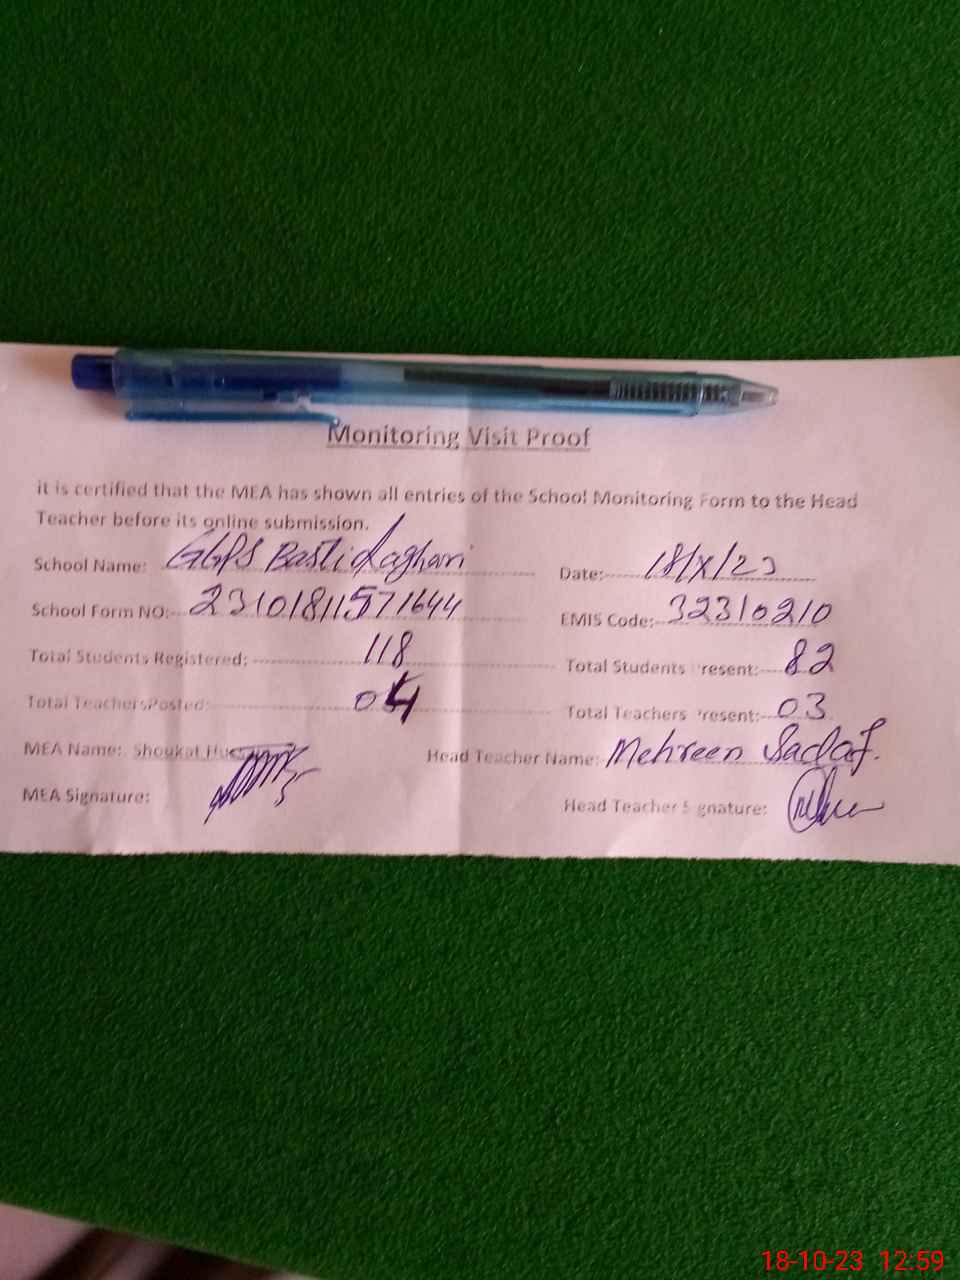 Monitoring Visit Proof
it is certified that the MEA has shown all entries of the School Monitoring Form to the Head
Teacher before its online submission.
School Name: GGPS Basti Laghari Date: 18/X/23
School Form NO: 23101811571644 EMIS Code: 32310210
Total Students Registered: 118 Total Students Present: 82
Total TeachersPosted: 04 Total Teachers Present: 03
MEA Name: Shoukat Head Teacher Name: Mehreen Sadaf.
MEA Signature: Head Teacher Signature:
18-10-23 12:59